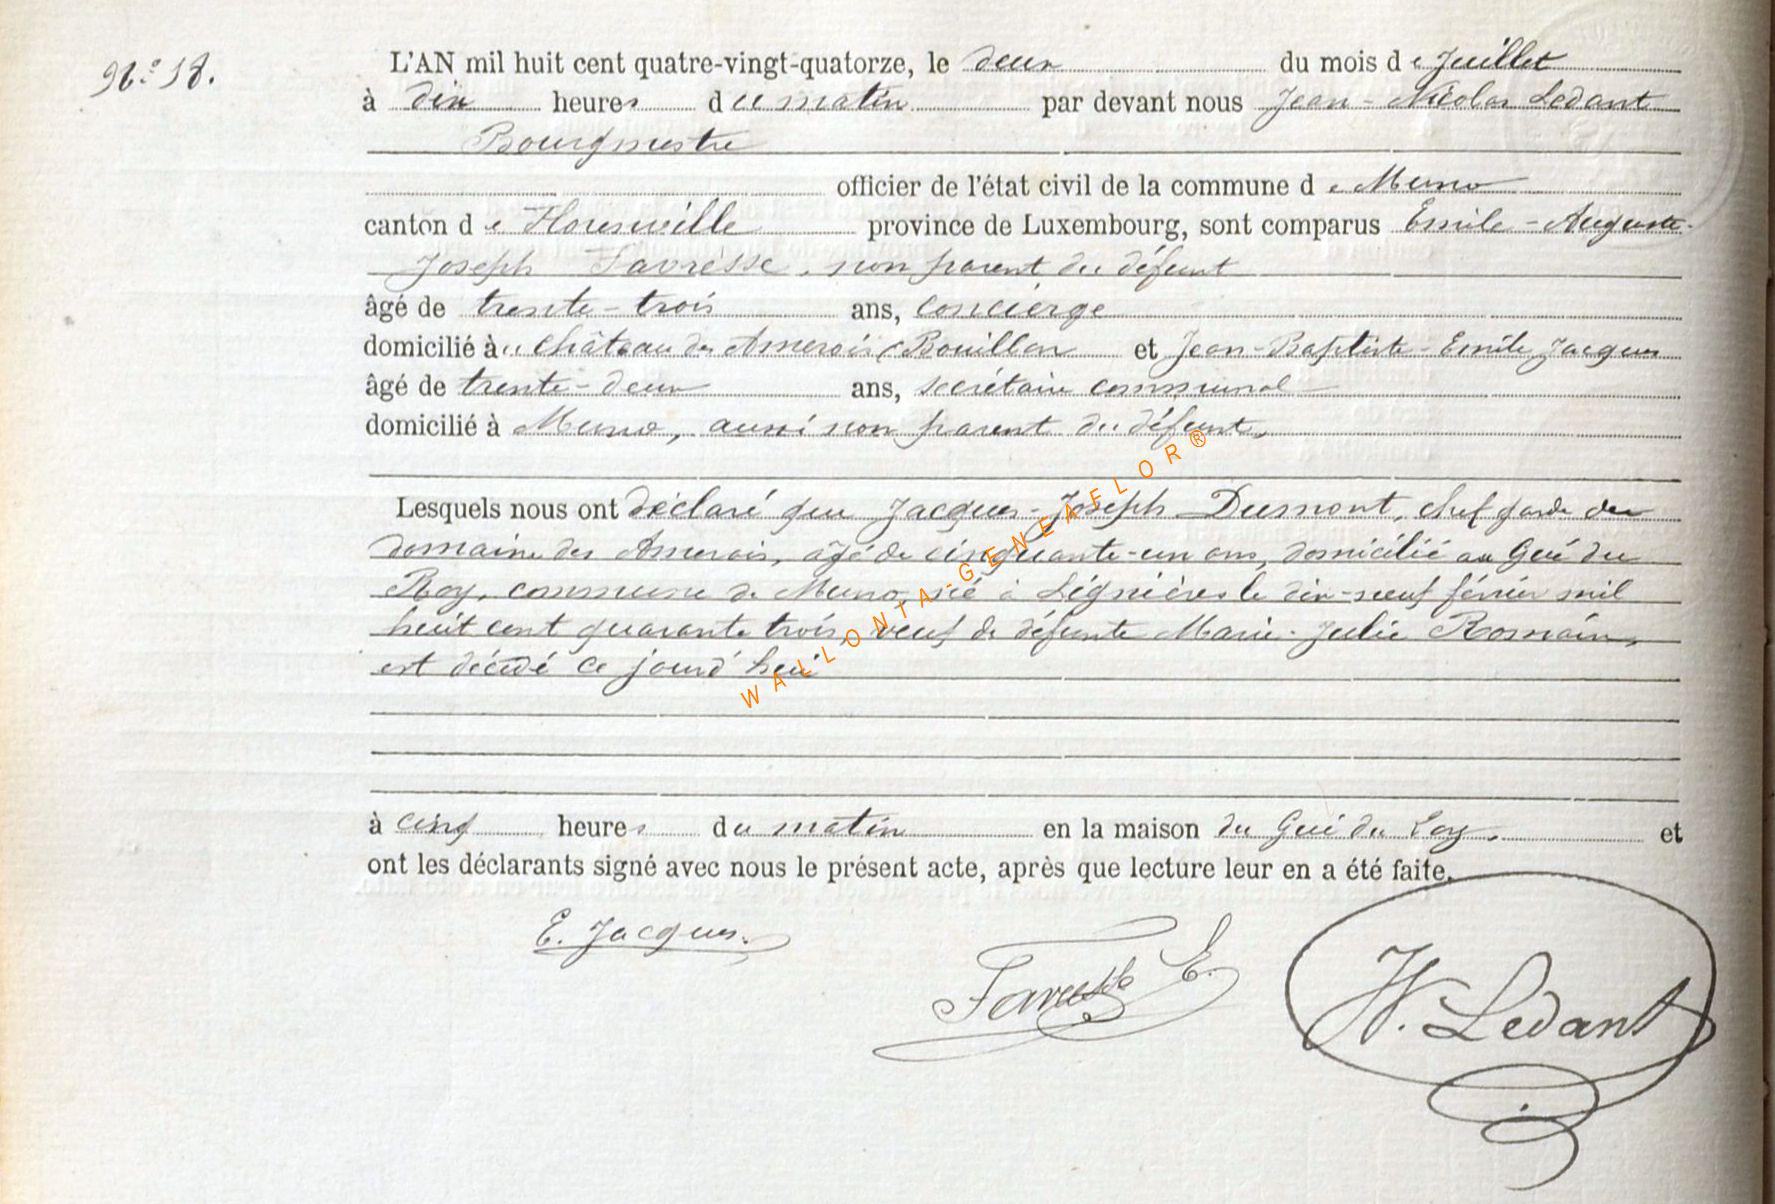 N.º 18.
L'AN mil huit cent quatre-vingt-quatorze, le deux du mois de Juillet
à dix heures du matin par devant nous Jean-Nicolas Ledant
Bourgmestre
officier de l'état civil de la commune de Muno
canton de Florenville province de Luxembourg, sont comparus Emile-Auguste-
Joseph Favresse, non parent du défunt
âgé de trente-trois ans, concierge
domicilié au château des Amerois (Bouillon et Jean-Baptiste-Emile Jacques
âgé de trente-deux ans, secrétaire communal
domicilié à Muno, aussi non parent du défunt,
Lesquels nous ont déclaré que Jacques-Joseph Dumont, chef garde du
domaine des Amerois, âgé de cinquante-un ans, domicilié au Gué du
Roy, commune de Muno, né à Lignières le dix-neuf février mil
huit cent quarante trois, veuf de défunte Marie-Julie Romain,
est décédé ce jourd'hui
à cinq heures du matin en la maison du Gué du Roy, et
ont les déclarants signé avec nous le présent acte, après que lecture leur en a été faite.
E. Jacques. Favresse E. N. Ledant
WALLONTA-GENEAFLOR®